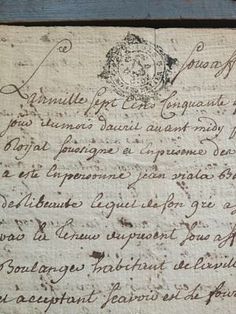 Sous aff
L'an mille Sept Cens Cinquante
jour du mois davril avant midy
soussigne et en presence des
a este en personne jean viala
de libeaute lequel de son gre
la teneur du present sous aff
Boulanger habitant de la vill
et acceptant scavoir est le four